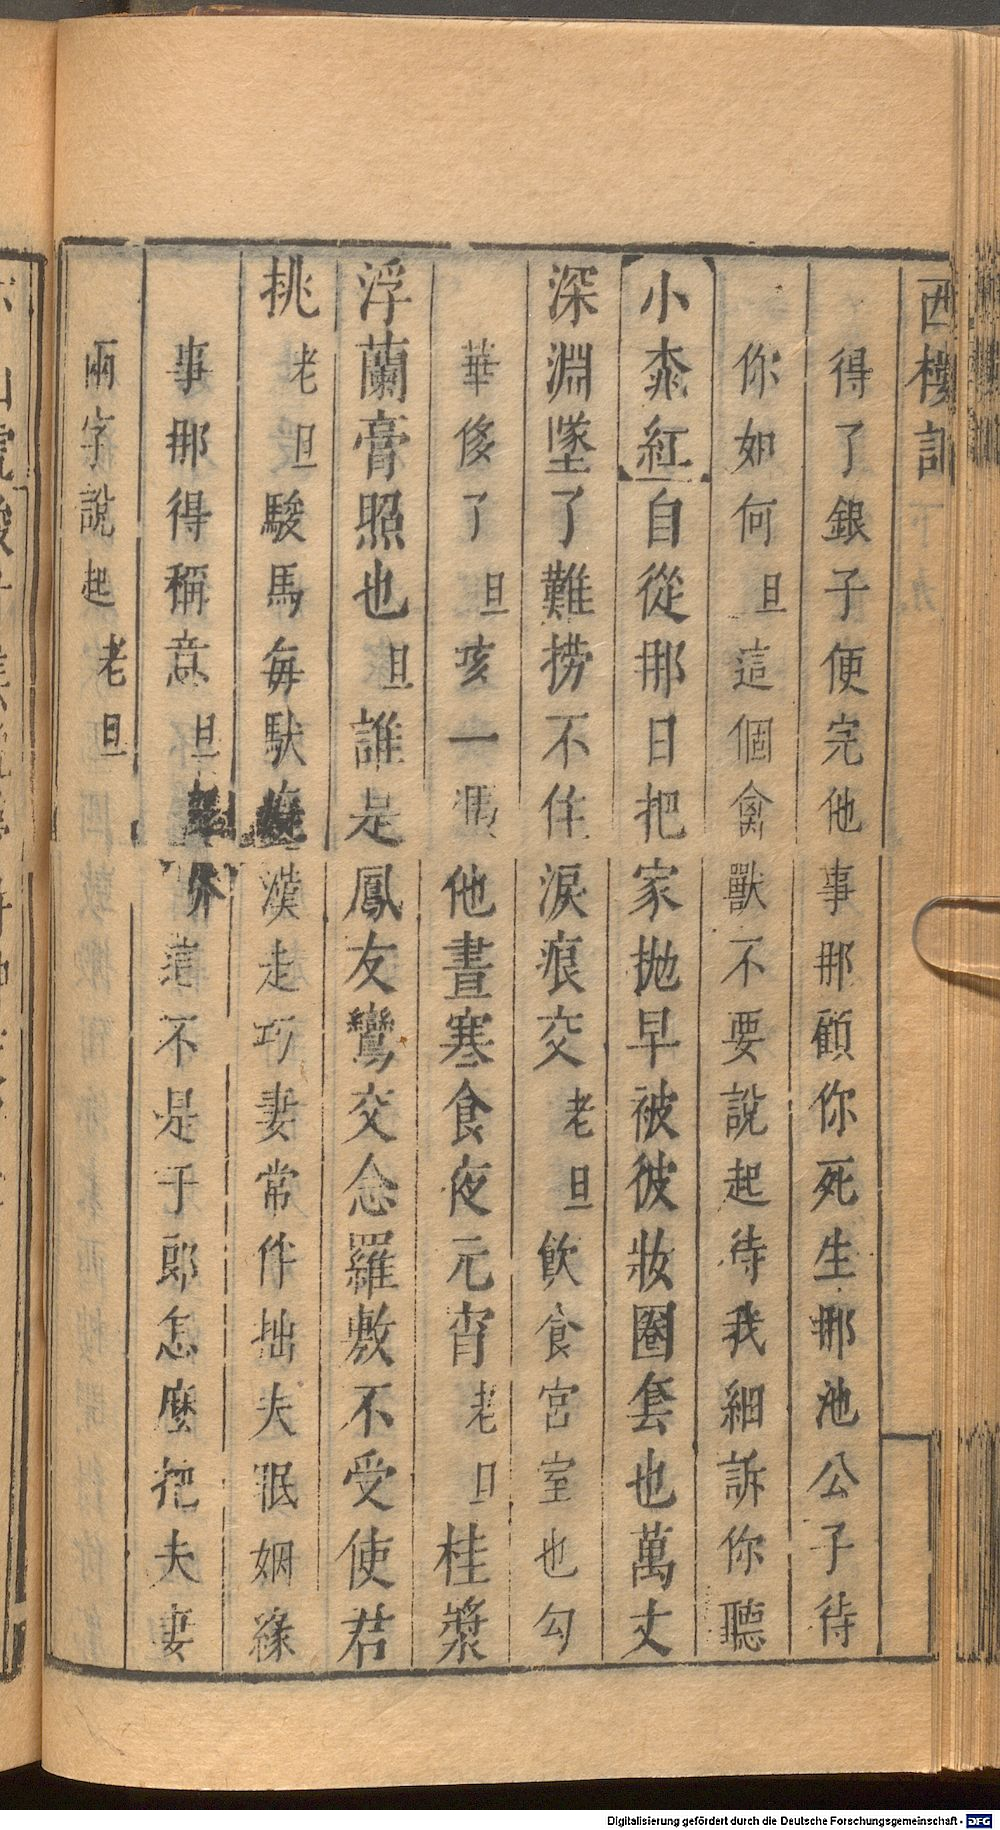 西樓記
得了銀子便完他事那顧你死生那池公子待
你如何旦這個禽獸不要說起待我細訴你聽
小桃紅自從那日把家抛早被彼妝圈套也萬丈
深淵墜了難撈不住淚痕交老旦飲食宮室也勾
華侈了旦亥一他晝寒食夜元宵老旦桂漿
浮蘭膏照也旦誰是鳳友鸞交念羅敷不受使君
挑老旦駿馬每馱漢走巧妻常伴拙夫眠姻緣
事那得稱意旦介這不是于郎怎麼把夫妻
兩字說起老旦
Digitalisierung gefördert durch die Deutsche Forschungsgemeinschaft - DFG